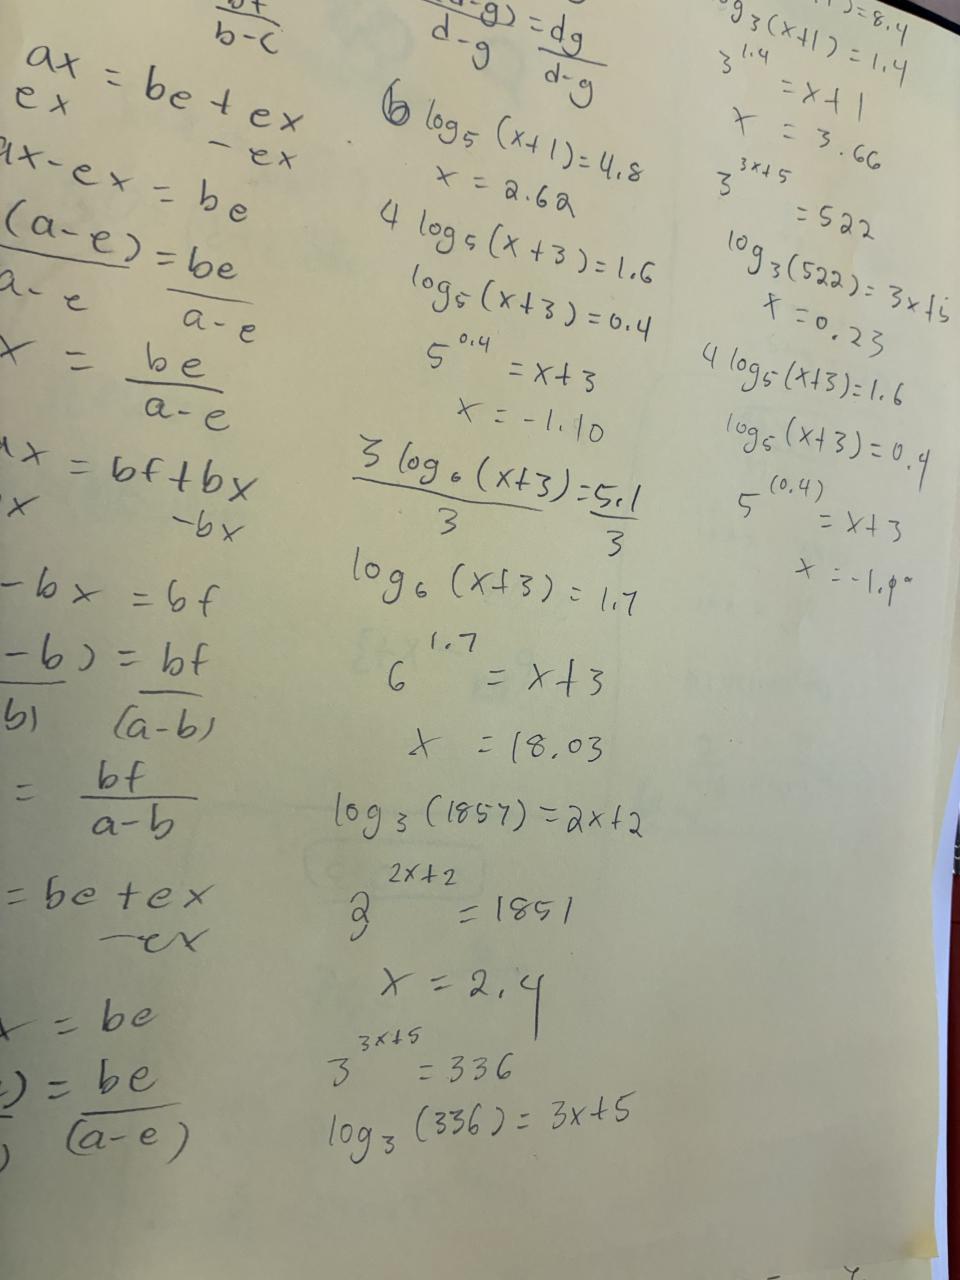 b-c
ax = be + ex
ex - ex
ax - ex = be
(a-e) = be
a-e a-e
x = be
a-e
ax = bf + bx
x -bx
-bx = bf
-b) = bf
b) (a-b)
= bf
a-b
= be + ex
-ex
x = be
) = be
(a-e)
-g) = dg
d-g d-g
6 log5 (x+1) = 4.8
x = 2.62
4 log5 (x+3) = 1.6
log5 (x+3) = 0.4
5^0.4 = x+3
x = -1.10
3 log6 (x+3) = 5.1
3 3
log6 (x+3) = 1.7
6^1.7 = x+3
x = 18.03
log3 (1857) = 2x+2
3^2x+2 = 1851
x = 2.4
3^3x+5 = 336
log3 (336) = 3x+5
) = 8.4
log3 (x+1) = 1.4
3^1.4 = x+1
x = 3.66
3^3x+5 = 522
log3 (522) = 3x+5
x = 0.23
4 log5 (x+3) = 1.6
log5 (x+3) = 0.4
5^(0.4) = x+3